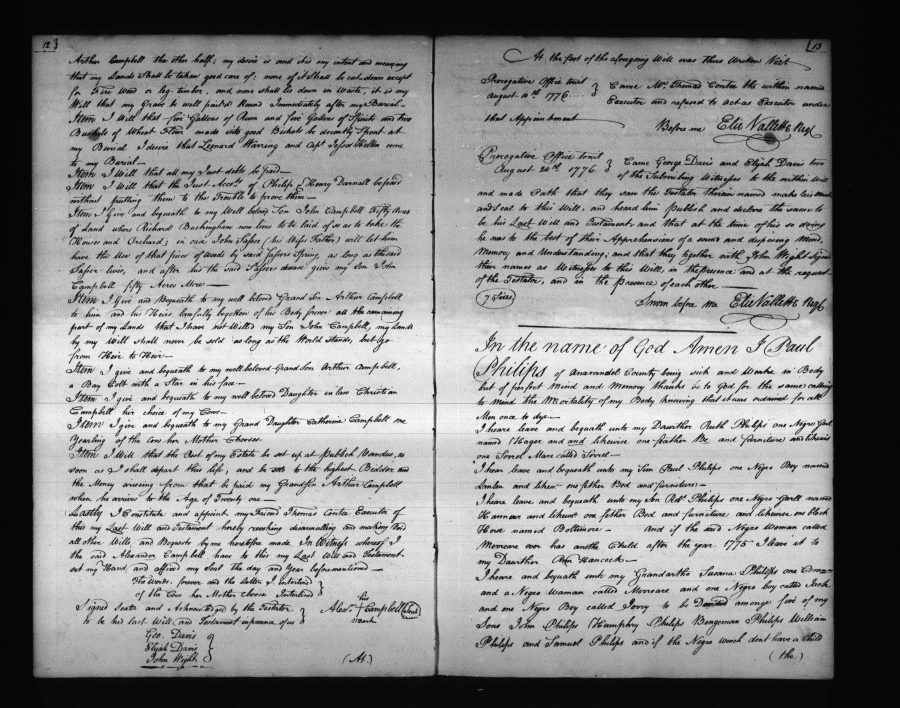 12
Arthur Campbell the other half; my desire is and it is my intent and meaning
that my Lands shall be taken good care of; none of it shall be cut down except
for Fire Wood or log timber, and none shall lie down in Waste, it is my
Will that my Grave be well paild Round Immediately after my Burial-
Item I Will that five Gallons of Rum and five Gallons of Spirits and two
Bushels of Wheat Flour made into good Biskets be decently Spent at
my Burial I desire that Leonard Warring and Capt come
to my Burial-
Item I Will that all my Just debts be paid-
Item I Will that the Just Accot. of Philip Henry Darnall be paid
without putting them to the Trouble to prove them-
Item I Give and bequeath to my Well belov'd Son John Campbell Fifty Acres
of Land where Richard Buckingham now lives to be laid of so as to take the
Houses and Orchard; in case John (his Wifes Father) will let him
have the Use of that piece of Woods by said Spring, as long as the said
lives, and after his the said decease give my Son John
Campbell fifty Acres More-
Item I Give and Bequeath to my well beloved Grand Son Arthur Campbell
to him and his Heirs lawfully begotten of his Body forever all the remaining
part of my Lands that I have not Willed my Son John Campbell, my Lands
by my Will shall never be sold as long as the World Stands, but go
from Heir to Heir-
Item I give and bequeath to my well beloved Grand Son Arthur Campbell,
a Bay Colt with a Star in his face-
Item I give and bequeath to my well beloved Daughter in law Christian
Campbell her choice of my Cows-
Item I give and bequeath to my Grand Daughter Catherine Campbell one
Yearling of the Cow her Mother Chooses.
Item I Will that the Rest of my Estate be set up at publick Vandue, as
soon as I shall depart this life, and be sold to the highest Bidder and
the Money arising from that be paid my Grandson Arthur Campbell
when he arrives to the Age of Twenty one-
Lastly I Constitute and appoint my Friend Thomas Contee Executor of
this my Last Will and Testament hereby revoking disannulling and making Void
all other Wills, and Bequests by me heretofore made In Witness whereof I
the said Alexander Campbell have to this my Last Will and Testament
set my Hand and affixed my Seal the day and Year beforementioned-
The Words, forever and the letter I Interlined }
of the Cow her Mother Choose Interlined }
Signed Seald and Acknowledged by the Testator }
to be his last Will and Testament in presence of us }
his
Alexr. + Campbell (Seal)
mark
Geo. Davis
Elijah Davis
John Wight
(At)
13
At the foot of the aforegoing Will was thus Written Vizt.
Prerogative Office to wit } Came Mr. Thomas Contee the within named
August 10th. 1776. Executor and refused to act as Executor under
that Appointment
Before me Elie Vallette Regr.
Prerogative Office to wit } Came George Davis and Elijah Davis two
August 26th. 1776. of the Subscribing Witnesses to the within Will
and made Oath that they saw the Testator therein named make his mark
and Seal to this Will, and heard him publish and declare the same to
be his Last Will and Testament, and that at the time of his so doing
he was to the best of their Apprehensions of a sound and disposing Mind,
Memory and Understanding; and that they together with John Wight signed
their names as Witnesses to this Will, in the presence and at the request
of the Testator, and in the presence of each other-
7 Sides Sworn before me Elie Vallette Regr.
In the name of God Amen I Paul
Philips of Annarandel County being sick and Weake in Body
but of perfect Mind and Memory thanks be to God for the same calling
to mind the Mortality of my Body knowing that it was ordained for all
Men once to dye-
I heare leave and bequath unto my Dawrther Ruth Philips one Negro Garl
named Hagar and and likewise one feather Be and furneture and likewis
one Sorrel Mare called
I hear leave and bequeath unto my Son Paul Philips one Negro Boy named
and likew one fether Bed and furneture-
I heare leave and bequeath unto my Son Philips one Negro Garll named
Hannar and likewise one fether Bed and furniture and likewise one black
Hors named Boltimore- And if the said Negro Woman called
Moreare ever has another Child after the year 1775 I leave it to
my Dawrther Hancock-
I heare and bequath unto my Grandarther Susana Philips one
and a Negro Woman called Moreare and one Negro boy called Jack
and one Negro Boy called Jorry to be Devided amongs five of my
Sons John Philips Humphry Philips Bengeman Philips William
Philips and Samuel Philips and if the Negro wench dont have a Child
(the)